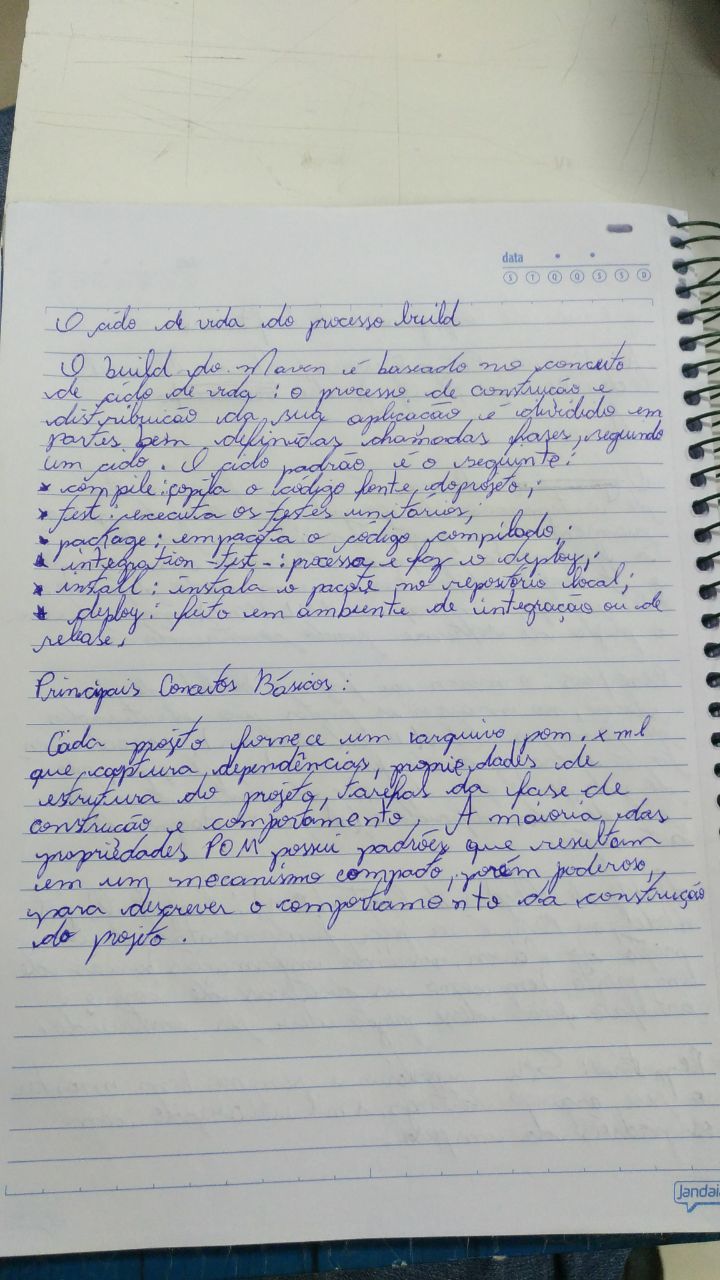 data
S T Q Q S S D
O ciclo de vida do processo build
O build do Maven é baseado no conceito
de ciclo de vida: o processo de construção e
distribuição da sua aplicação é dividido em
partes bem definidas chamadas fases, seguindo
um ciclo. O ciclo padrão é o seguinte:
* compile: copila o código fonte do projeto;
* test: executa os testes unitários;
* package: empacota o código compilado;
* integration-test-: processa e faz o deploy;
* install: instala o pacote no repositório local;
* deploy: feito em ambiente de integração ou de
release.
Principais Conceitos Básicos:
Cada projeto fornece um arquivo pom.xml
que captura dependências, propriedades de
estrutura do projeto, tarefas da fase de
construção e comportamento. A maioria das
propriedades POM possui padrões que resultam
em um mecanismo compacto, porém poderoso,
para descrever o comportamento da construção
do projeto.
Jandaia